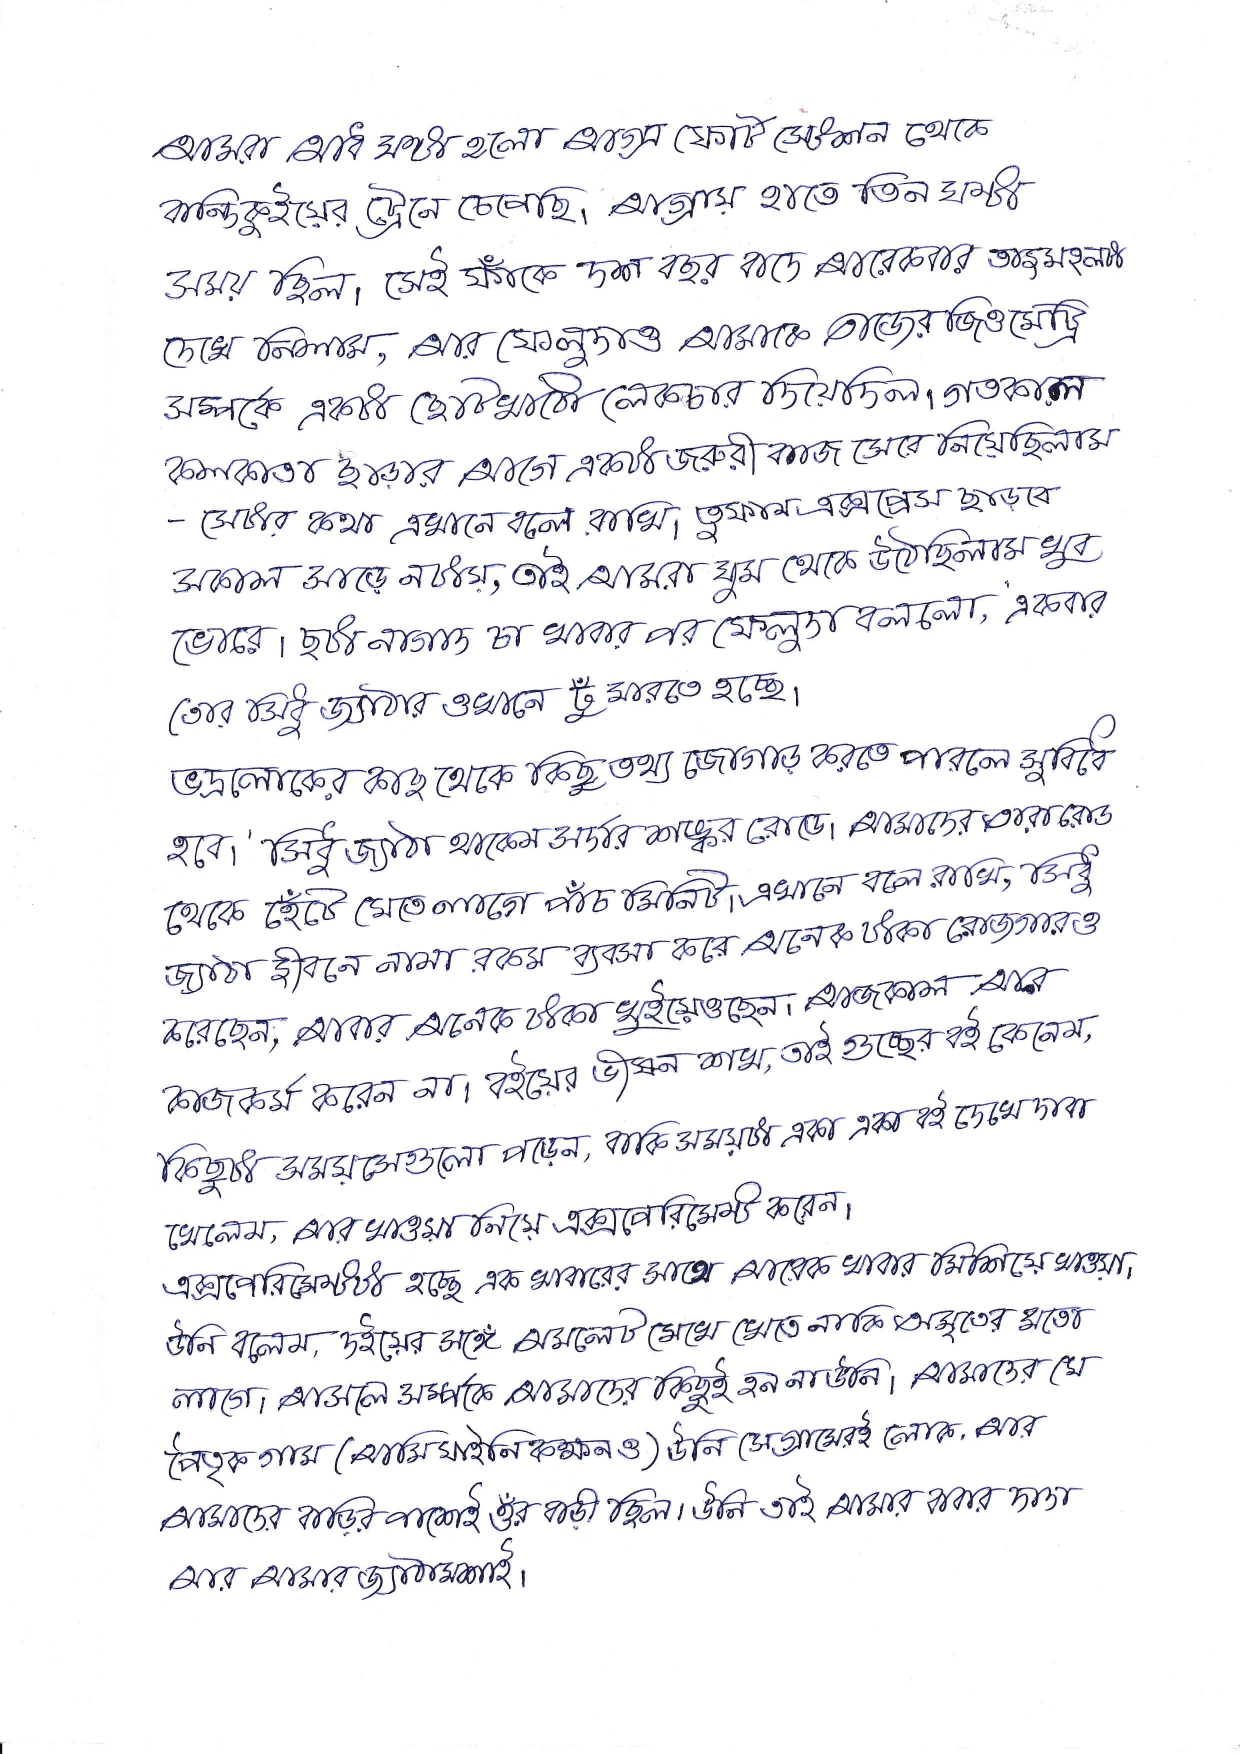 আমরা আধ ঘন্টা হলো আগ্রা ফোর্ট স্টেশন থেকে
বান্দিকুইয়ের ট্রেনে চেপেছি। আগ্রায় হাতে তিন ঘন্টা
সময় ছিল। সেই ফাঁকে দশ বছর বাদে আরেকবার তাজমহলটা
দেখে নিলাম, আর ফেলুদাও আমাকে তাজের জিওমেট্রি
সম্পর্কে একটা ছোটখাটো লেকচার দিয়েদিল। গতকাল
কলকাতা ছাড়ার আগে একটা জরুরী কাজ সেরে নিয়েছিলাম
- সেটার কথা এখানে বলে রাখি। তুফান এক্সপ্রেস ছাড়বে
সকাল সাড়ে নটায়, তাই আমরা ঘুম থেকে উঠেছিলাম খুব
ভোরে। ছটা নাগাদ চা খাবার পর ফেলুদা বললো, 'একবার
তোর সিধু জ্যাঠার ওখানে ঢুঁ মারতে হচ্ছে।
ভদ্রলোকের কাছ থেকে কিছু তথ্য জোগাড় করতে পারলে সুবিধে
হবে।' সিধু জ্যাঠা থাকেন সর্দার শঙ্কর রোডে। আমাদের তারারোড
থেকে হেঁটে যেতে লাগে পাঁচ মিনিট। এখানে বলে রাখি, সিধু
জ্যাঠা জীবনে নানা রকম ব্যবসা করে অনেক টাকা রোজগারও
করেছেন, আবার অনেক টাকা খুইয়েওছেন। আজকাল আর
কাজকর্ম করেন না। বইয়ের ভীষন শখ, তাই গুচ্ছের বই কেনেন,
কিছুটা সময় সেগুলো পড়েন, বাকি সময়টা একা একা বই দেখে দাবা
খেলেন, আর খাওয়া নিয়ে এক্সপেরিমেন্ট করেন।
এক্সপেরিমেন্টটা হচ্ছে এক খাবারের সাথে আরেক খাবার মিশিয়ে খাওয়া।
উনি বলেন, দইয়ের সঙ্গে অমলেট মেখে খেতে নাকি অমৃতের মতো
লাগে। আসলে সম্পর্কে আমাদের কিছুই হন না উনি। আমাদের যে
পৈতৃক গাম (আমি যাইনি কক্ষনও) উনি সেগ্রামেরই লোক, আর
আমাদের বাড়ির পাশেই ওঁর বাড়ী ছিল। উনি তাই আমার বাবার দাদা
আর আমার জ্যাঠামশাই।